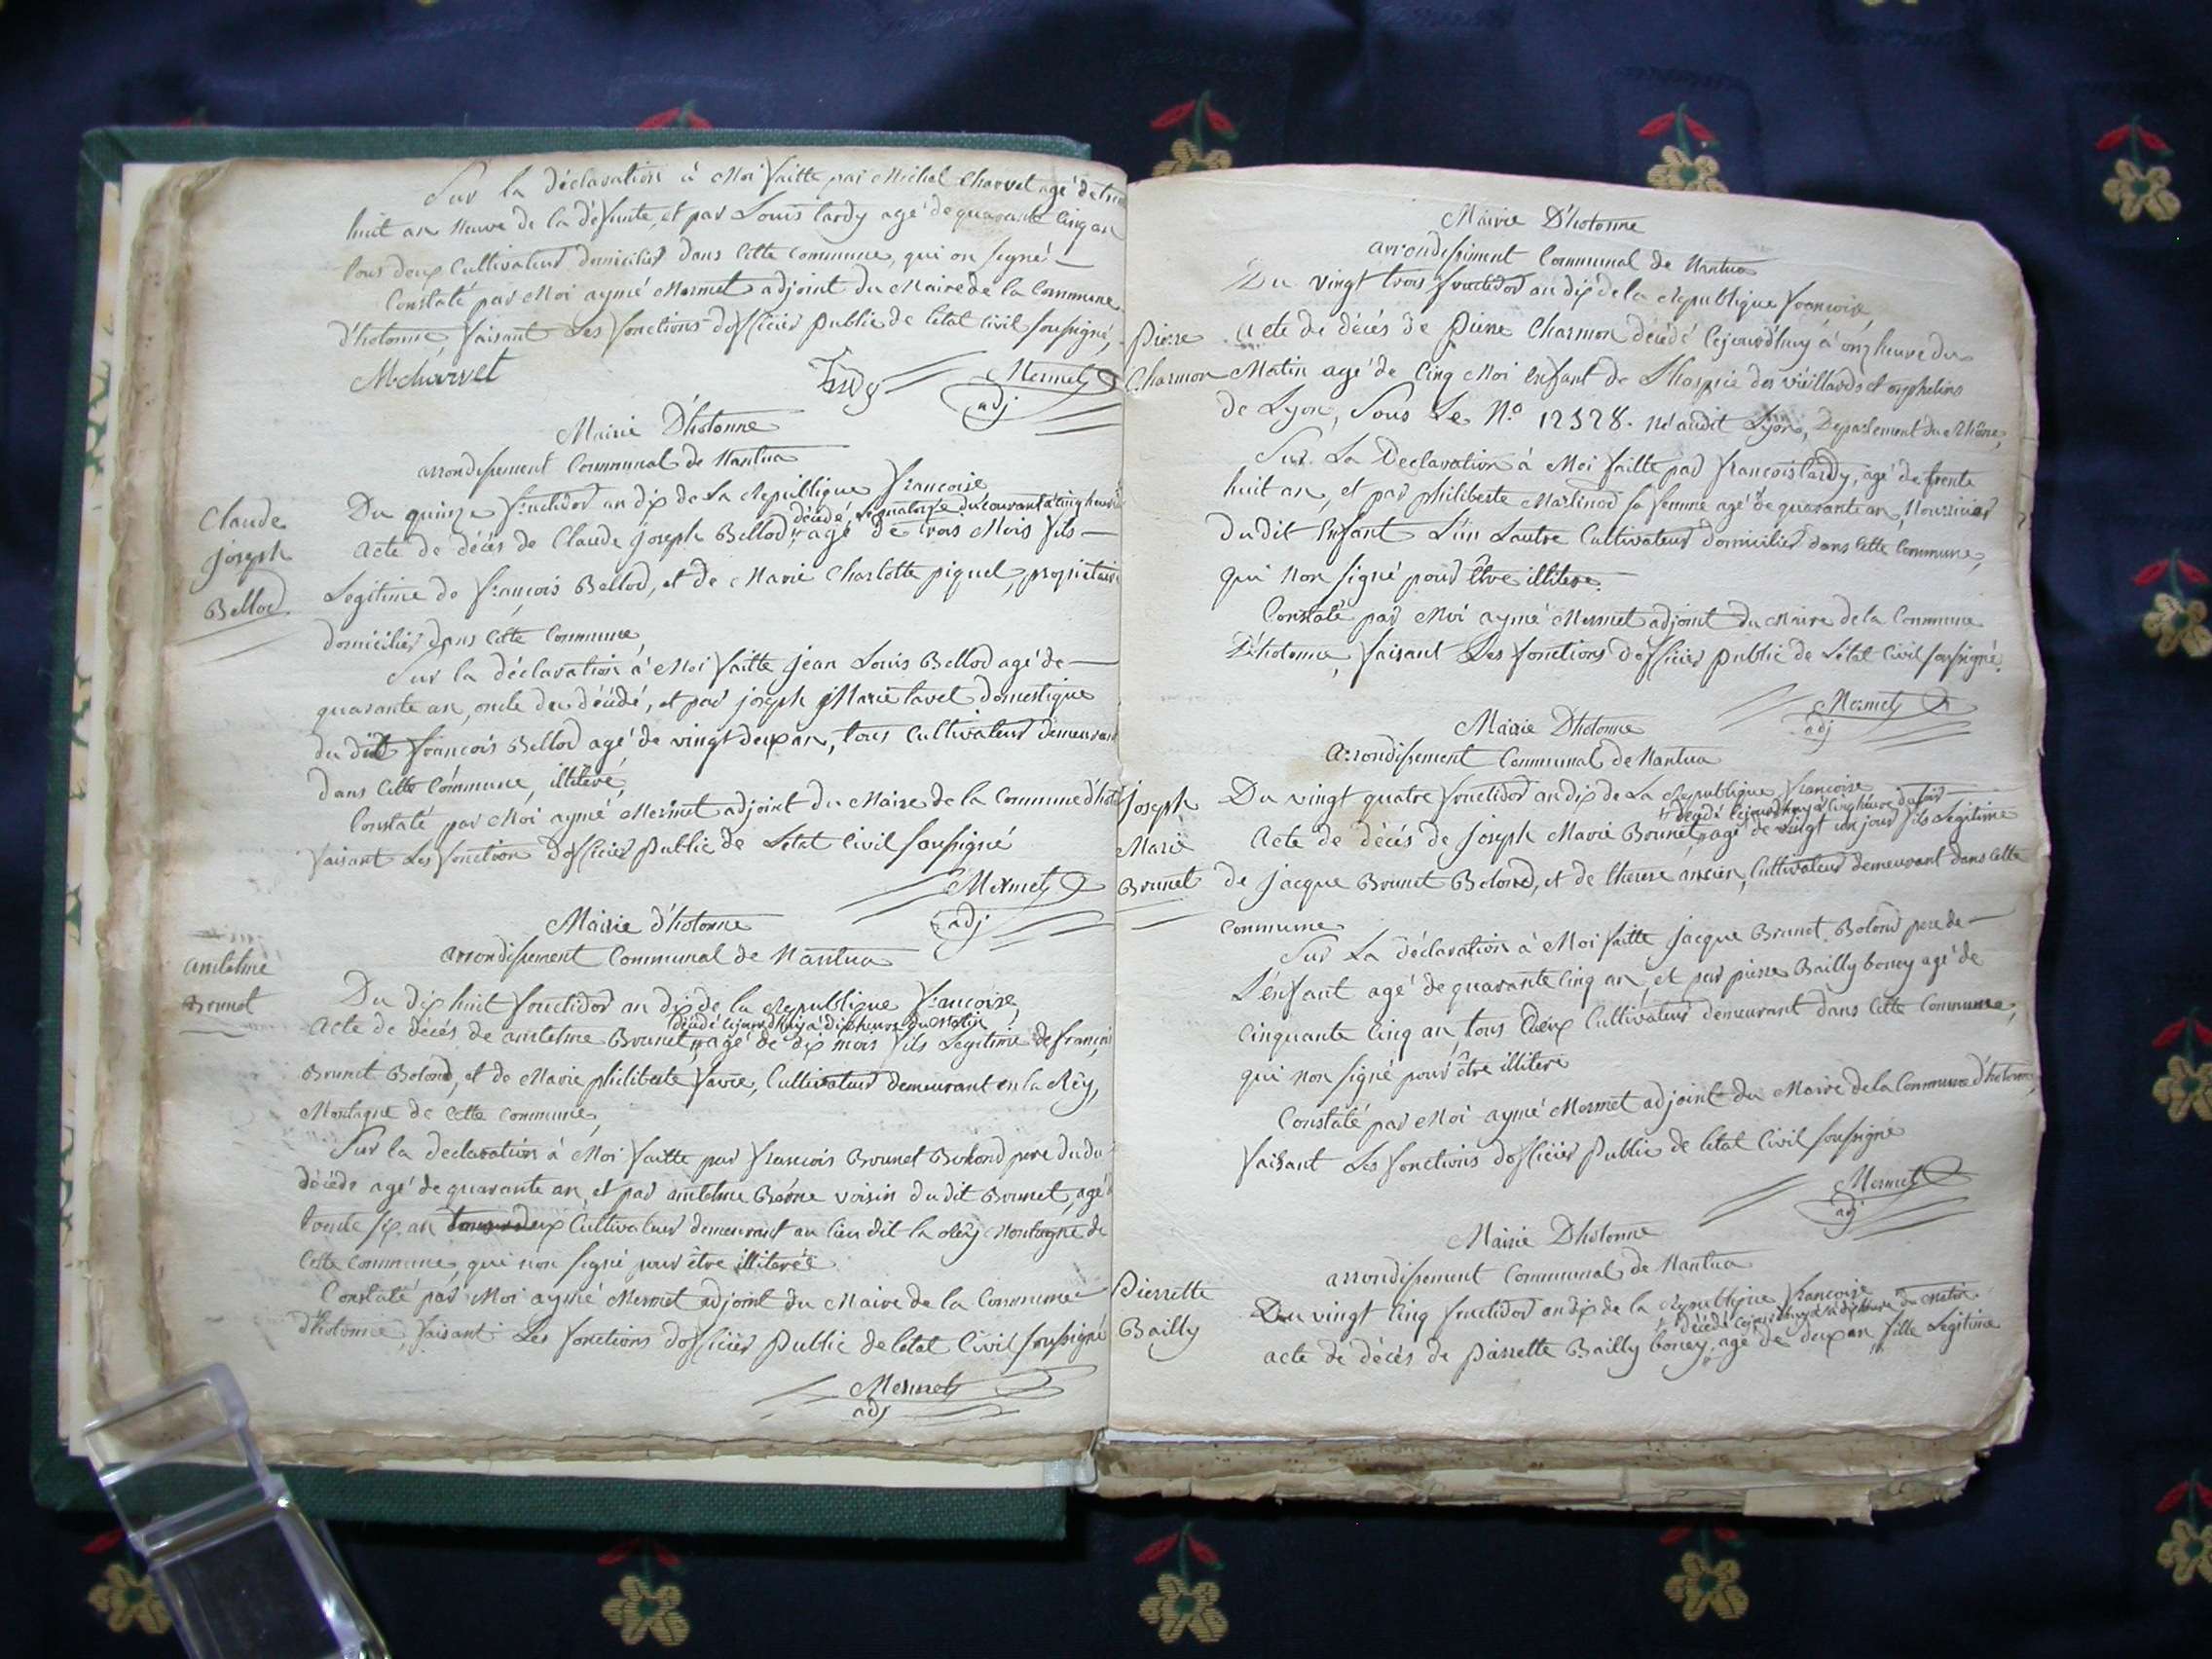 Sur la déclaration à Moi faitte par Michel Charvet agé de trente
huit an neuve de la défunte, et par Louis tardy agé de quarante Cinq an
tous deux Cultivateur domicilier dans Cette Commune, qui on signé
Constaté par Moi aymé Mermet adjoint du Maire de la Commune
d'hotonne, faisant Les fonctions dofficier public de letat Civil soussigné,
M charvet
Mermet
adj
Mairie D'hotonne
arrondissement Communal de Nantua
Claude
joseph
Bellod
Du quinze fructidor an dix de La Republique francoise
décédé, le quatorze du courant à Cinq heure
acte de décés de Claude joseph Bellod, agé de trois Mois fils
Legitime de françois Bellod, et de Marie Charlotte piquet, propriétaire
domicilier dans Cette Commune,
Sur la déclaration à Moi faitte jean Louis Bellod agé de
quarante an, oncle du décédé, et par joseph Marie tavet domestique
du dit françois Bellod agé de vingt deux an, tous Cultivateur demeurant
dans Cette Commune, illiteré,
Constaté par Moi aymé Mermet adjoint du Maire de la Commune d'hot
faisant Les fonction dofficier Public de Letat Civil soussigné
Mermet
adj
Mairie d'hotonne
arrondissement Communal de Nantua
antelme
Brunet
Du dix huit fructidor an dix de la Republique françoise,
décédé Cejourdhuy à dix heure du Matin
acte de décés de antelme Brunet, agé de dix mois fils Legitime de françois
Brunet Bolond, et de Marie philiberte favre, Cultivateur demeurant en la Rey,
Montagne de Cette Commune,
Sur la declaration à Moi faitte par francois Brunet Bolond pere du du
décéde agé de quarante an, et par antelme voisin du dit Brunet, agé
trente six an tous deux Cultivateur demeurant au lieu dit la Rey Montagne de
Cette Commune, qui non signé pour être illiteré
Constaté par Moi aymé Mermet adjoint du Maire de la Commune
d'hotonne, faisant Les fonctions dofficier Public de letat Civil soussigné
Mermet
adj
Mairie D'hotonne
arrondissement Communal de Nantua
Du vingt trois fructidor an dix de la Republique françoise,
Pierre
Charmon
acte de décés de Pierre Charmon décédé Cejourd'huy à onz heure du
Matin agé de Cinq Moi enfant de L'hospice des vieillards et orphelins
de Lyon, Sous Le N.o 12328. né audit Lyon, Departement du Rhône,
Sur La Declaration à Moi faitte par francois tardy, agé de trente
huit an, et par philiberte Martinod sa femme agé de quarante an, Nourricier
du dit Enfant L'un Lautre Cultivateur domicilier dans Cette Commune,
qui Non signé pour être illitere
Constaté par Moi aymé Mermet adjoint du Maire de la Commune
D'hotonne, faisant Les fonctions dofficier public de L'état Civil soussigné.
Mermet
adj
Mairie D'hotonne
Arrondissement Communal de Nantua
joseph
Marie
Brunet
Du vingt quatre fructidor an dix de La Republique francoise
décédé Cejourdhuy à Cinq heure du soir
Acte de décés de joseph Marie Brunet, agé de vingt un jour fils Legitime
de jacque Brunet Bolond, et de therese ancien, Cultivateur demeurant dans Cette
Commune
Sur La déclaration à Moi faitte jacque Brunet Bolond pere de
L'énfant agé de quarante Cinq an, et par pierre Bailly boney agé de
Cinquante Cinq an, tous Deux Cultivateur demeurant dans Cette Commune,
qui Non signé pour être illitere
Constaté par Moi aymé Mermet adjoint du Maire de la Commune d'hotonne,
faisant Les fonctions dofficier Public de letat Civil soussigné
Mermet
adj
Mairie D'hotonne
arrondissement Communal de Nantua
Pierrette
Bailly
Du vingt Cinq fructidor an dix de la Republique francoise
décédé Cejourdhuy à dix heure du Matin
acte de décés de Pierrette Bailly boney, agé de deux an fille Legitime